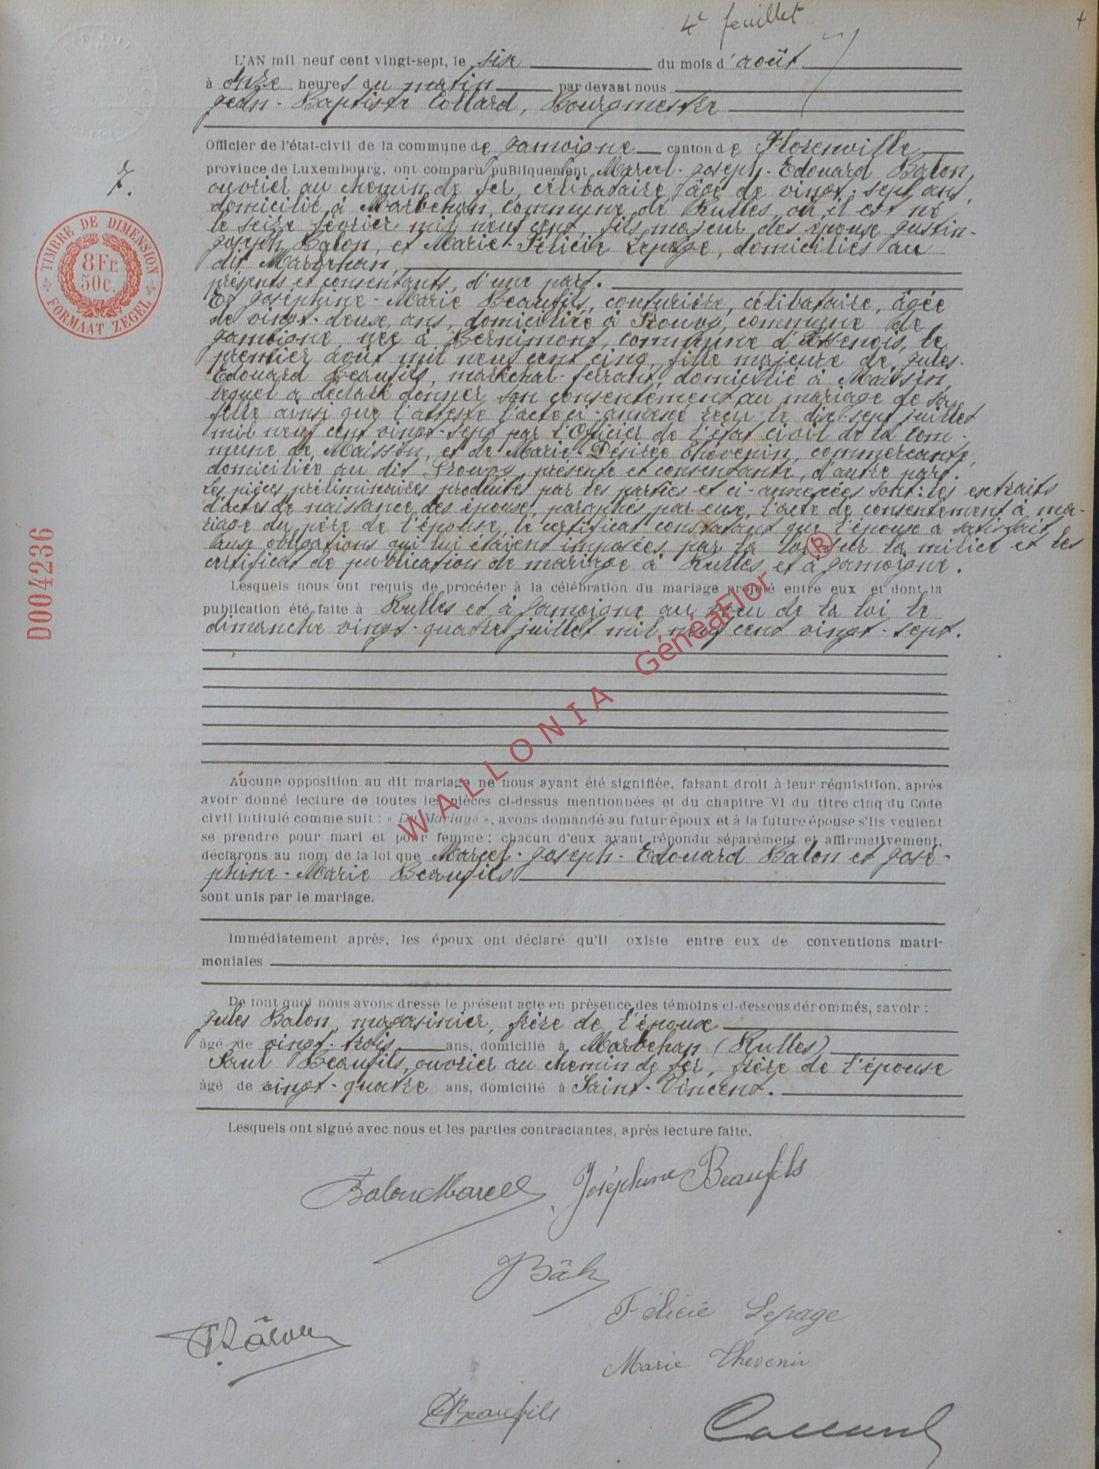 4e feuillet
L'AN mil neuf cent vingt-sept, le six du mois d'août
à onze heures du matin par devant nous
Jean-Baptiste Collard, Bourgmestre
Officier de l'état-civil de la commune de Jamoigne canton de Florenville
province de Luxembourg, ont comparu publiquement Marcel-Joseph-Edouard Balon,
ouvrier au chemin de fer, célibataire, âgé de vingt-sept ans,
domicilié à Marbehan, commune de Rulles, où il est né
le seize février mil neuf cent, fils majeur des époux Justin-
Joseph Balon, et Marie-Félicie Lepage, domiciliés au
dit Marbehan,
présents et consentants, d'une part.
7.
TIMBRE DE DIMENSION
8 Fr.
50c.
FORMAAT ZEGEL
Et Joséphine-Marie Beaufils, couturière, célibataire, âgée
de vingt-deux ans, domiciliée à Prouvy, commune de
Jamoigne, née à Bernimont, commune d'Assenois, le
premier août mil neuf cent cinq, fille majeure de Jules-
Edouard Beaufils, maréchal-ferrant, domicilié à Maissin,
lequel a déclaré donner son consentement au mariage de sa
fille ainsi que l'atteste l'acte ci-annexé reçu le dix-sept juillet
mil neuf cent vingt-sept par l'Officier de l'état civil de la com-
mune de Maissin, et de Marie-Désirée Thévenin, commerçante,
domiciliée au dit Prouvy, présente et consentante, d'autre part.
Les pièces préliminaires produites par les parties et ci-annexées sont: les extraits
d'actes de naissance des époux, paraphés par eux, l'acte de consentement à ma-
riage du père de l'épouse, le certificat constatant que l'époux a satisfait
aux obligations qui lui étaient imposées par la loi sur la milice et les
certificats de publication de mariage à Rulles et à Jamoigne.
D004236
Lesquels nous ont requis de procéder à la célébration du mariage projeté entre eux et dont la
publication été faite à Rulles et à Jamoigne au vœu de la loi le
dimanche vingt-quatre juillet mil neuf cent vingt-sept.
WALLONIA GénéaFlor ®
Aucune opposition au dit mariage ne nous ayant été signifiée, faisant droit à leur réquisition, après
avoir donné lecture de toutes les pièces ci-dessus mentionnées et du chapitre VI du titre cinq du Code
civil intitulé comme suit : « Du Mariage », avons demandé au futur époux et à la future épouse s'ils veulent
se prendre pour mari et pour femme ; chacun d'eux ayant répondu séparément et affirmativement,
déclarons au nom de la loi que Marcel-Joseph-Edouard Balon et José-
phine-Marie Beaufils
sont unis par le mariage.
Immédiatement après, les époux ont déclaré qu'il existe entre eux de conventions matri-
moniales
De tout quoi nous avons dressé le présent acte en présence des témoins ci-dessous dénommés, savoir :
Jules Balon, magasinier, frère de l'époux
âgé de vingt-trois ans, domicilié à Marbehan (Rulles)
Paul Beaufils, ouvrier au chemin de fer, frère de l'épouse
âgé de vingt-quatre ans, domicilié à Saint-Vincent.
Lesquels ont signé avec nous et les parties contractantes, après lecture faite.
Balon Marcel
Joséphine Beaufils
Félicie Lepage
Marie Thevenin
Beaufils
Collard